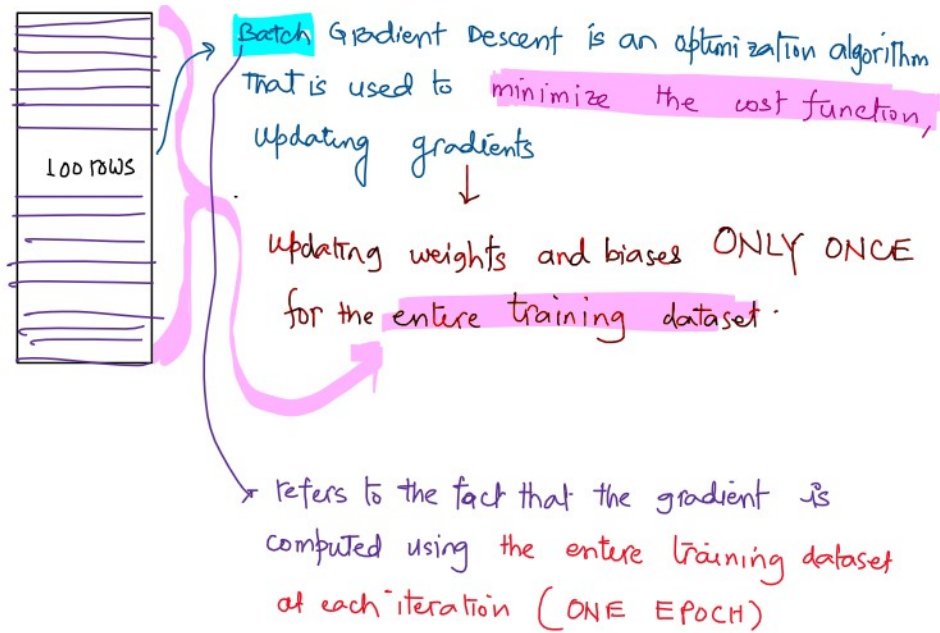 Batch Gradient Descent is an optimization algorithm
that is used to minimize the cost function,
updating gradients
100 rows
updating weights and biases ONLY ONCE
for the entere training dataset.
refers to the fact that the gradient is
computed using the entere training dataset
at each iteration (ONE EPOCH)